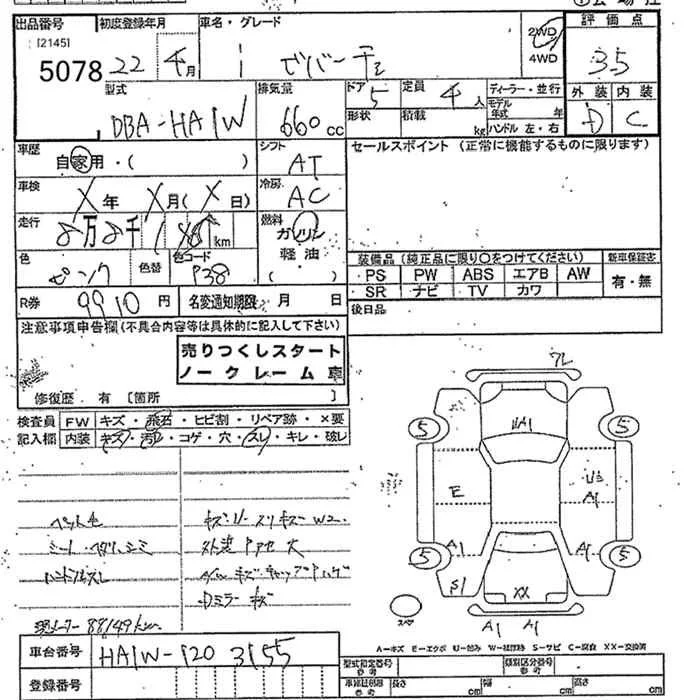 出品番号
初度登録年月
車名・グレード
評価点
[2145]
5078
22年4月
i ビバーチェ
2WD
4WD
3.5
型式
DBA-HA1W
排気量
660cc
ドア
5
定員
4人
ディーラー・並行
形状
積載
kg
モデル年式 年
ハンドル 左・右
外装
内装
D
C
車歴
自家用・( )
シフト
AT
セールスポイント (正常に機能するものに限ります)
車検
X年 X月(X日)
冷房
AC
走行
8万8千1
km
燃料
ガソリン
軽油
( )
色
ピンク
色替
色コード
P38
装備品(純正品に限り〇をつけてください)
新車保証書
PS
PW
ABS
エアB
AW
SR
ナビ
TV
カワ
有・無
R券
9910円
名変通知期限
月 日
後日品
注意事項申告欄(不具合内容等は具体的に記入して下さい)
売りつくしスタート
ノークレーム車
修復歴 有 [箇所
検査員
記入欄
FW
キズ・飛石・ヒビ割・リペア跡・×要
内装
キズ・汚レ・コゲ・穴・スレ・キレ・破レ
ペット毛
キズ・U・スリキズ W2
外装
Dミラーキズ
現メーター 88149km
フレ
UA1
5
5
E
U3
A1
A1
A1
5
5
S1
XX
スペア
A1 A1
A-キズ E-エクボ U-凹み W-補修跡 S-サビ C-腐食 XX-交換済
車台番号
HA1W-120 3155
登録番号
型式指定番号
類別区分番号
参考
長さ
cm
幅
cm
高さ
cm